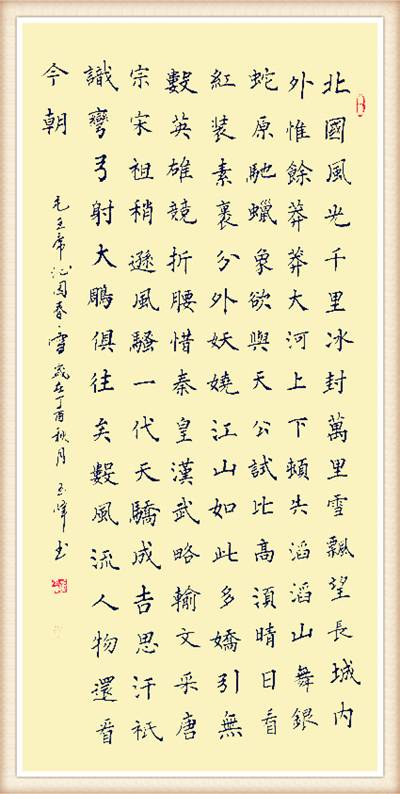 北國風光千里冰封萬里雪飄望長城內
外惟餘莽莽大河上下頓失滔滔山舞銀
蛇原馳蠟象欲與天公試比高須晴日看
紅裝素裹分外妖嬈江山如此多嬌引無
數英雄競折腰惜秦皇漢武略輸文采唐
宗宋祖稍遜風騷一代天驕成吉思汗祇
識彎弓射大鵰俱往矣數風流人物還看
今朝
毛主席沁园春·雪歲在丁酉秋月 玉峰书